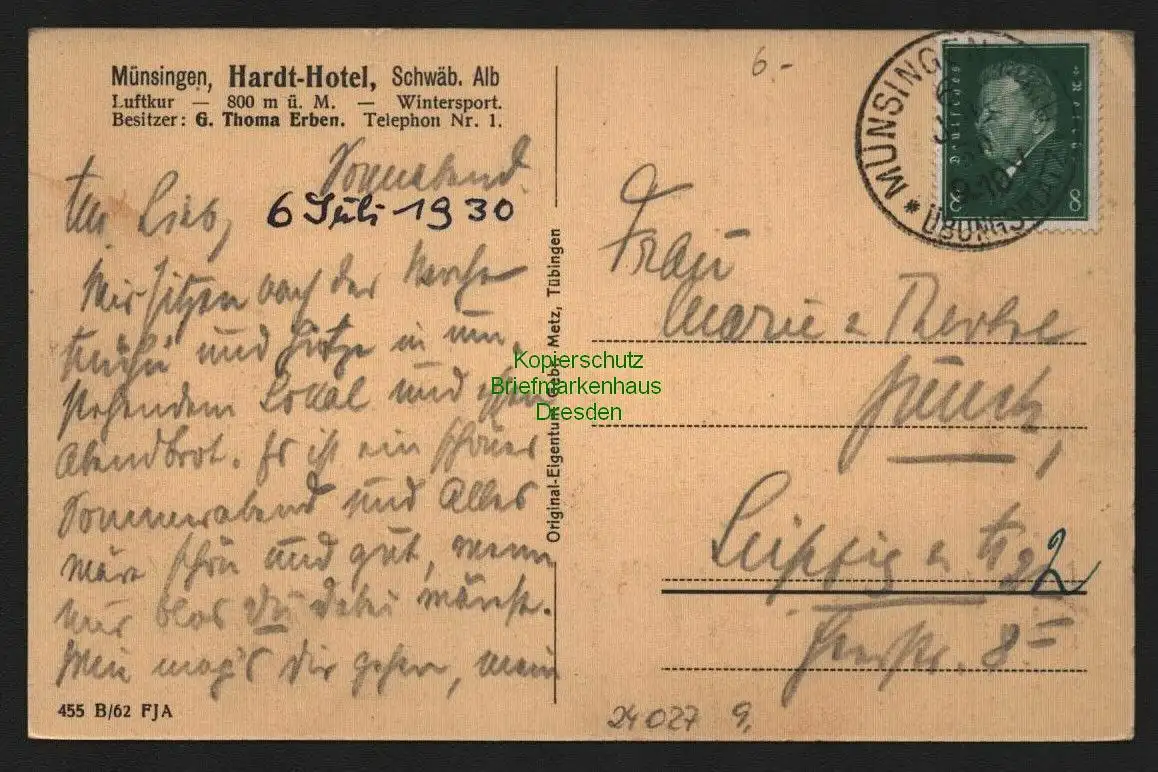 Münsingen, Hardt-Hotel, Schwäb. Alb
Luftkur — 800 m ü. M. — Wintersport.
Besitzer: G. Thoma Erben. Telephon Nr. 1.
Sonnabend.
6 Juli 1930
Lieb,
Wir sitzen nach der
und Hitze in
stehendem Lokal und essen
Abendbrot. Es ist ein schöner
Sommerabend und Alles
wäre schön und gut, wenn
nur blos Du dabei wärest.
Wie mag's Dir gehen, mein
455 B/62 FJA
Original-Eigentum Gebr. Metz, Tübingen
Kopierschutz
Briefmarkenhaus
Dresden
6.-
MÜNSINGEN
ÜBUNGSPLATZ
Deutsches Reich
8 8
Frau
Marie
Leipzig
2
8
24027 9,